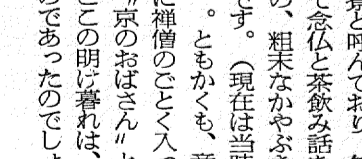 景と呼んでおり
て念仏と茶飲み話を
の、粗末なかやぶき
です。（現在は当時
。ともかくも、
に禅僧のごとく入っ
〃京のおばさん〃と
とこの明け暮れは、
のであったのでしょ